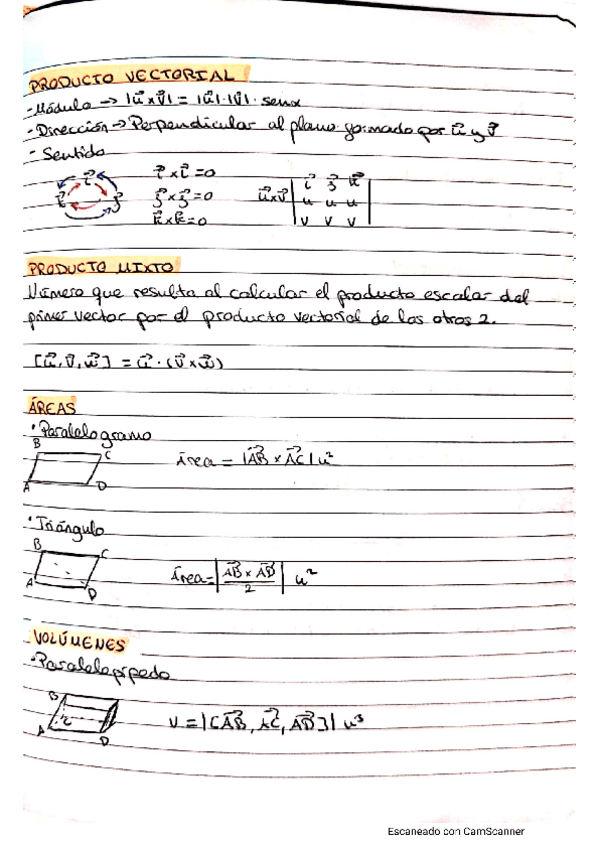 PRODUCTO VECTORIAL
-Módulo → |u⃗ x v⃗| = |u⃗|·|v⃗|· senα
-Dirección → Perpendicular al plano formado por u⃗ y v⃗
- Sentido
i⃗ x i⃗ = 0
j⃗ x j⃗ = 0
k⃗ x k⃗ = 0
i⃗
k⃗ j⃗
u⃗xv⃗ | i⃗ j⃗ k⃗ |
u u u
v v v
PRODUCTO MIXTO
Número que resulta al calcular el producto escalar del
primer vector por el producto vectorial de los otros 2.
[u⃗, v⃗, w⃗] = u⃗ · (v⃗ x w⃗)
ÁREAS
· Paralelogramo
B C
A D
Área = |AB⃗ x AC⃗| u²
· Triángulo
B C
A D
Área = |AB⃗ x AD⃗ / 2| u²
VOLÚMENES
· Paralelepípedo
B
C
A D
V = |[AB⃗, AC⃗, AD⃗]| u³
Escaneado con CamScanner